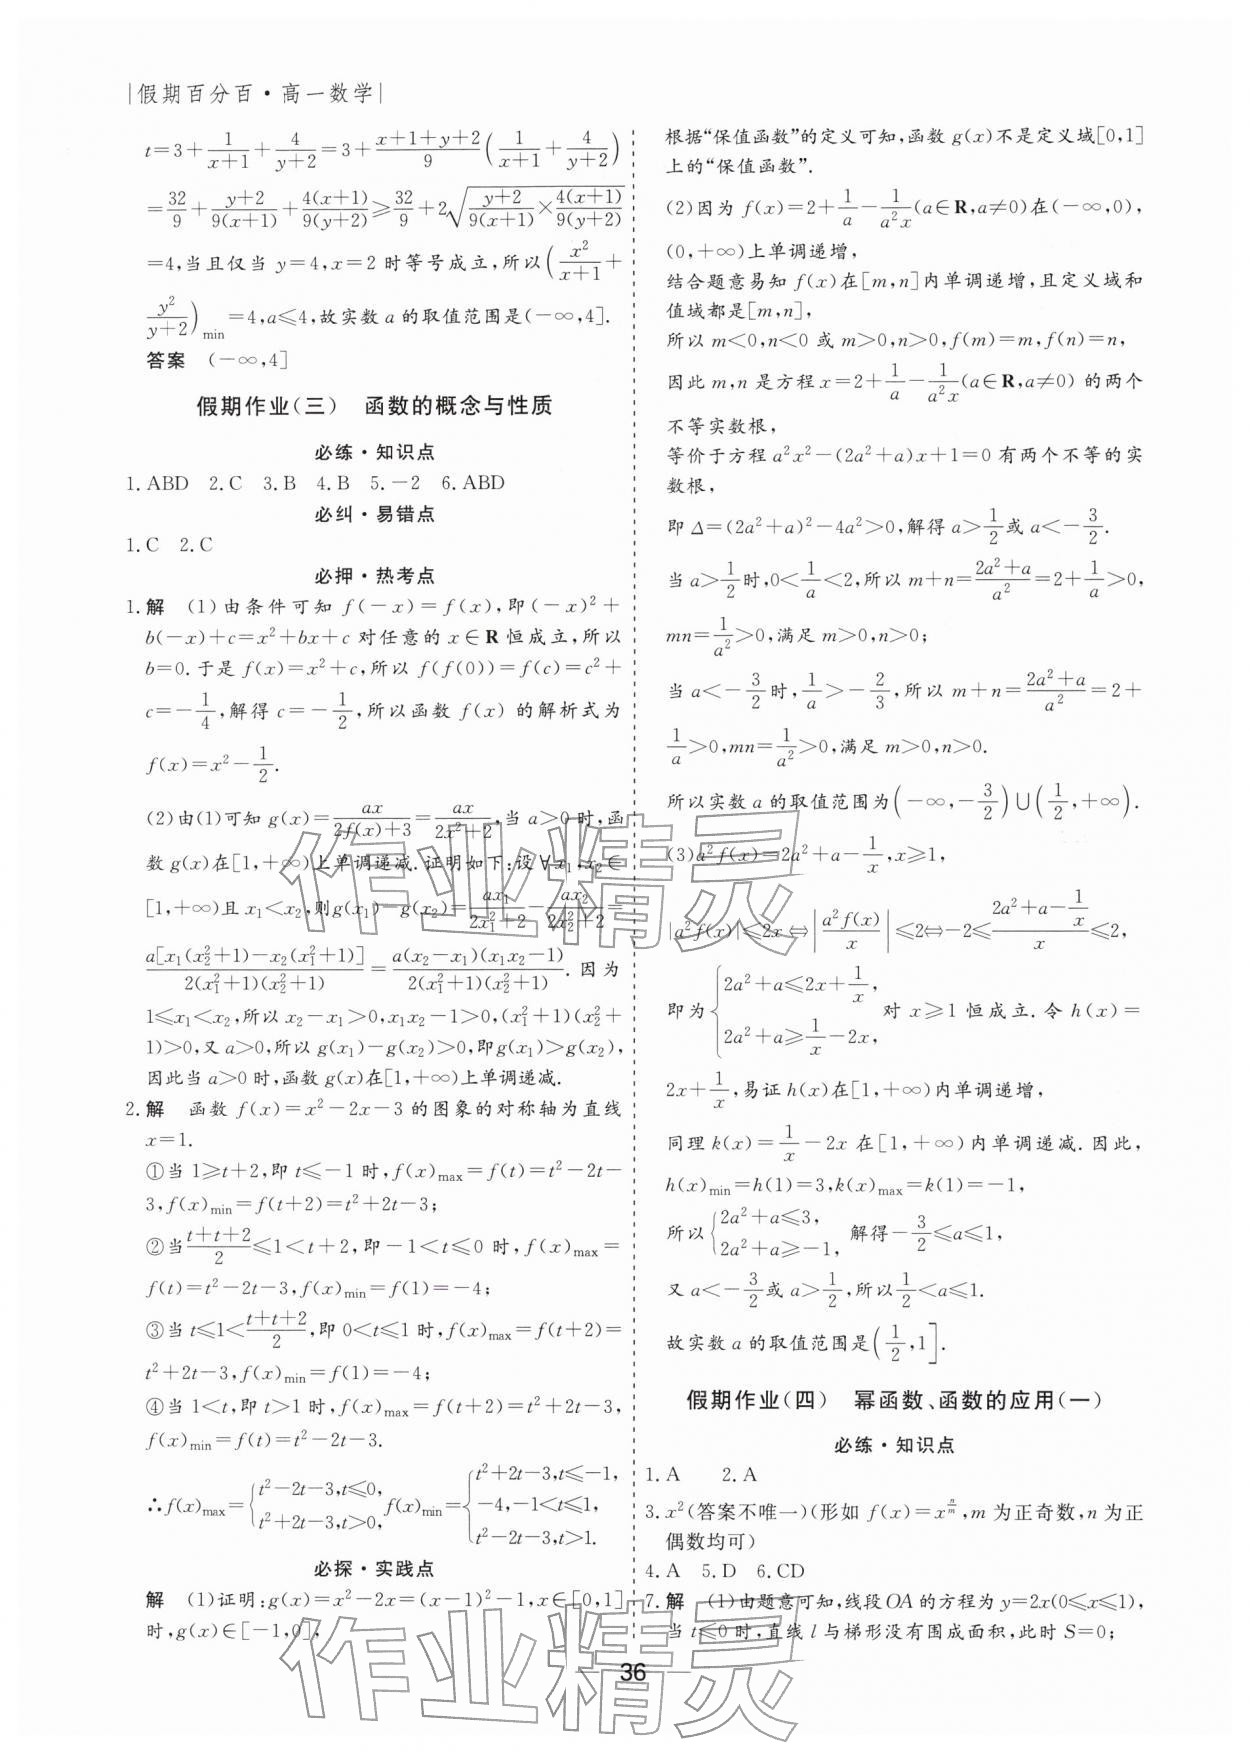 |假期百分百·高一数学|
t=3+\frac{1}{x+1}+\frac{4}{y+2}=3+\frac{x+1+y+2}{9}(\frac{1}{x+1}+\frac{4}{y+2})
=\frac{32}{9}+\frac{y+2}{9(x+1)}+\frac{4(x+1)}{9(y+2)}≥\frac{32}{9}+2\sqrt{\frac{y+2}{9(x+1)}×\frac{4(x+1)}{9(y+2)}}
=4,当且仅当 y=4,x=2 时等号成立,所以(\frac{x²}{x+1}+
\frac{y²}{y+2})_{min}=4,a≤4,故实数 a 的取值范围是(-∞,4].
答案 (-∞,4]
假期作业(三) 函数的概念与性质
必练·知识点
1.ABD 2.C 3.B 4.B 5.-2 6.ABD
必纠·易错点
1.C 2.C
必押·热考点
1.解 (1)由条件可知 f(-x)=f(x),即(-x)²+
b(-x)+c=x²+bx+c 对任意的 x∈R 恒成立,所以
b=0.于是 f(x)=x²+c,所以 f(f(0))=f(c)=c²+
c=-\frac{1}{4},解得 c=-\frac{1}{2},所以函数 f(x) 的解析式为
f(x)=x²-\frac{1}{2}.
(2)由(1)可知 g(x)=\frac{ax}{2f(x)+3}=\frac{ax}{2x²+2},当 a>0 时,函
数 g(x)在[1,+∞)上单调递减.证明如下:设∀x₁,x₂∈
[1,+∞)且 x₁<x₂,则g(x₁)-g(x₂)=\frac{ax₁}{2x₁²+2}-\frac{ax₂}{2x₂²+2}=
\frac{a[x₁(x₂²+1)-x₂(x₁²+1)]}{2(x₁²+1)(x₂²+1)}=\frac{a(x₂-x₁)(x₁x₂-1)}{2(x₁²+1)(x₂²+1)}.因为
1≤x₁<x₂,所以 x₂-x₁>0,x₁x₂-1>0,(x₁²+1)(x₂²+
1)>0,又 a>0,所以 g(x₁)-g(x₂)>0,即g(x₁)>g(x₂),
因此当 a>0 时,函数 g(x)在[1,+∞)上单调递减.
2.解 函数 f(x)=x²-2x-3 的图象的对称轴为直线
x=1.
①当 1≥t+2,即 t≤-1 时,f(x)_{max}=f(t)=t²-2t-
3,f(x)_{min}=f(t+2)=t²+2t-3;
②当\frac{t+t+2}{2}≤1<t+2,即-1<t≤0 时,f(x)_{max}=
f(t)=t²-2t-3,f(x)_{min}=f(1)=-4;
③当 t≤1<\frac{t+t+2}{2},即 0<t≤1 时,f(x)_{max}=f(t+2)=
t²+2t-3,f(x)_{min}=f(1)=-4;
④当 1<t,即 t>1 时,f(x)_{max}=f(t+2)=t²+2t-3,
f(x)_{min}=f(t)=t²-2t-3.
∴f(x)_{max}={t²-2t-3,t≤0, t²+2t-3,t>0, f(x)_{min}={t²+2t-3,t≤-1, -4,-1<t≤1, t²-2t-3,t>1.
必探·实践点
解 (1)证明:g(x)=x²-2x=(x-1)²-1,x∈[0,1]
时,g(x)∈[-1,0],
根据“保值函数”的定义可知,函数 g(x)不是定义域[0,1]
上的“保值函数”.
(2)因为 f(x)=2+\frac{1}{a}-\frac{1}{a²x}(a∈R,a≠0)在(-∞,0),
(0,+∞)上单调递增,
结合题意易知 f(x)在[m,n]内单调递增,且定义域和
值域都是[m,n],
所以 m<0,n<0 或 m>0,n>0,f(m)=m,f(n)=n,
因此 m,n 是方程 x=2+\frac{1}{a}-\frac{1}{a²x}(a∈R,a≠0) 的两个
不等实数根,
等价于方程 a²x²-(2a²+a)x+1=0 有两个不等的实
数根,
即 Δ=(2a²+a)²-4a²>0,解得 a>\frac{1}{2}或 a<-\frac{3}{2}.
当 a>\frac{1}{2}时,0<\frac{1}{a}<2,所以 m+n=\frac{2a²+a}{a²}=2+\frac{1}{a}>0,
mn=\frac{1}{a²}>0,满足 m>0,n>0;
当 a<-\frac{3}{2}时,\frac{1}{a}>-\frac{2}{3},所以 m+n=\frac{2a²+a}{a²}=2+
\frac{1}{a}>0,mn=\frac{1}{a²}>0,满足 m>0,n>0.
所以实数 a 的取值范围为(-∞,-\frac{3}{2})∪(\frac{1}{2},+∞).
(3)a²f(x)=2a²+a-\frac{1}{x},x≥1,
|a²f(x)|≤2x⇔|\frac{a²f(x)}{x}|≤2⇔-2≤\frac{2a²+a-\frac{1}{x}}{x}≤2,
即为{2a²+a≤2x+\frac{1}{x}, 2a²+a≥\frac{1}{x}-2x, 对 x≥1 恒成立.令 h(x)=
2x+\frac{1}{x},易证 h(x)在[1,+∞)内单调递增,
同理 k(x)=\frac{1}{x}-2x 在[1,+∞)内单调递减.因此,
h(x)_{min}=h(1)=3,k(x)_{max}=k(1)=-1,
所以{2a²+a≤3, 2a²+a≥-1, 解得-\frac{3}{2}≤a≤1,
又 a<-\frac{3}{2}或 a>\frac{1}{2},所以\frac{1}{2}<a≤1.
故实数 a 的取值范围是(\frac{1}{2},1].
假期作业(四) 幂函数、函数的应用(一)
必练·知识点
1.A 2.A
3.x²(答案不唯一)(形如 f(x)=x^{\frac{n}{m}},m 为正奇数,n 为正
偶数均可)
4.A 5.D 6.CD
7.解 (1)由题意可知,线段OA 的方程为 y=2x(0≤x≤1),
当 t≤0 时,直线 l 与梯形没有围成面积,此时 S=0;
36
作业精灵
作业精灵